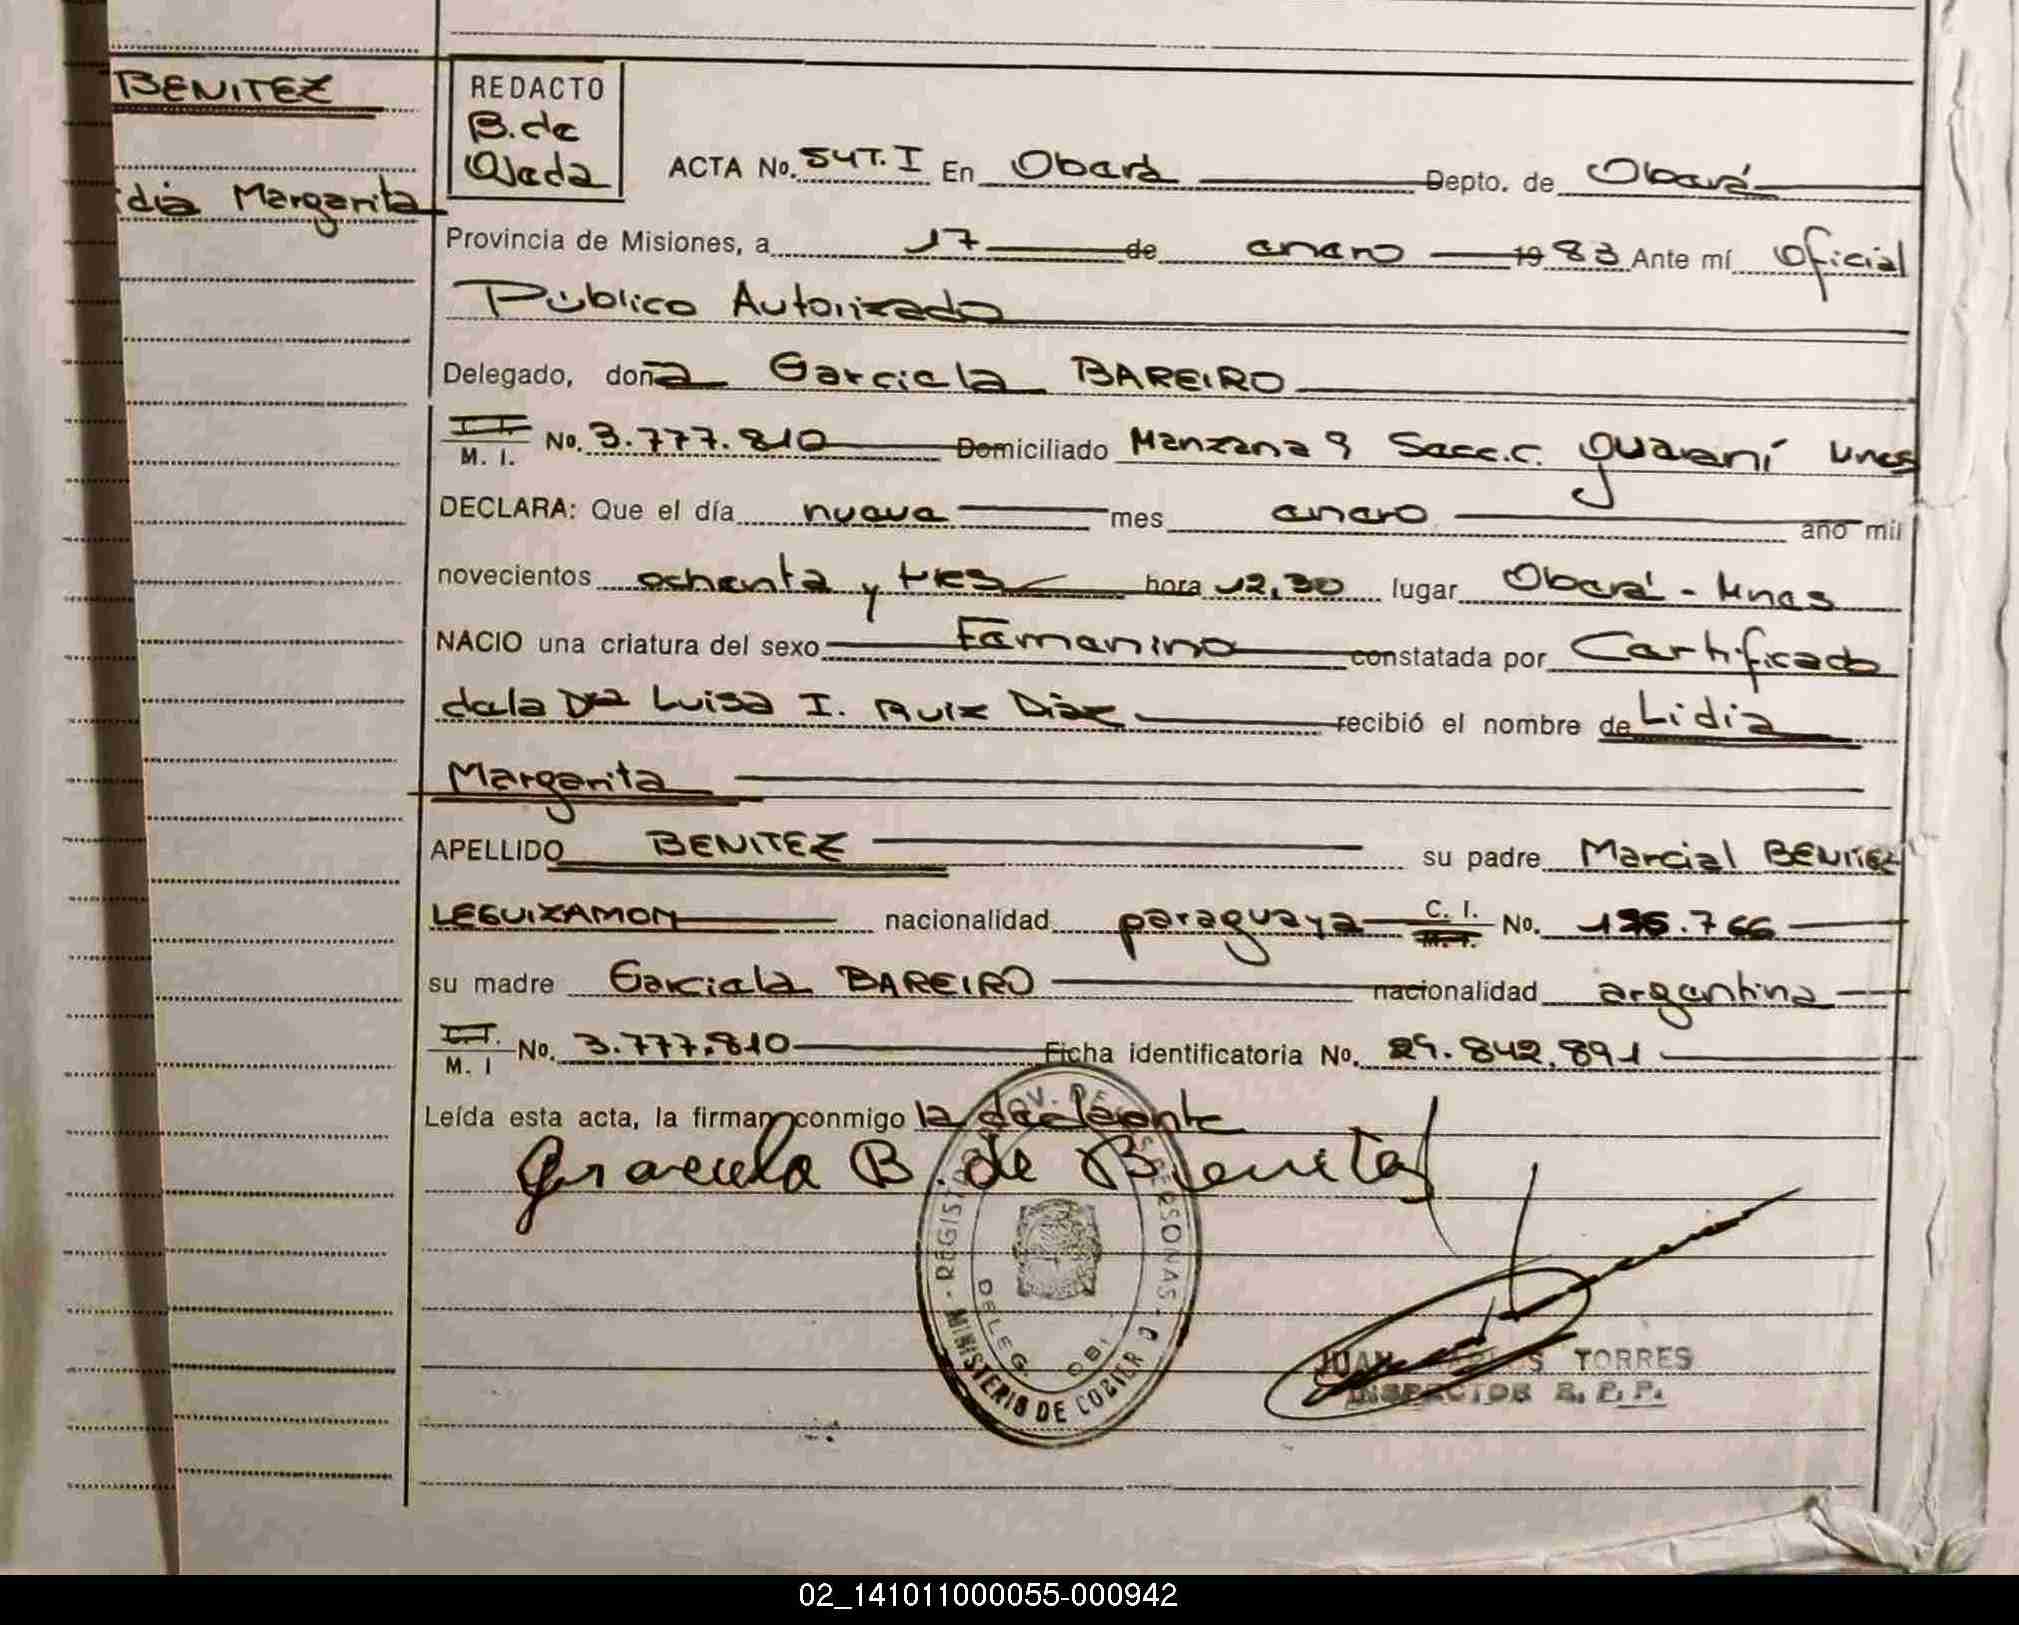 BENITEZ
idia Margarita
REDACTO
B. de
Ojeda
ACTA No. 54 T. I En Oberá Depto. de Oberá
Provincia de Misiones, a 17 de enero 1983 Ante mí Oficial
Público Autorizado
Delegado, doña Garciela BAREIRO
M. I. No. 3.777.810 Domiciliado Manzana 9 Secc. C. guaraní Mnes
DECLARA: Que el día nueve mes enero año mil
novecientos ochenta y tres hora 12,30 lugar Oberá - Mnes
NACIO una criatura del sexo Femenino constatada por Certificado
dela Dra Luisa I. Ruiz Diaz recibió el nombre de Lidia
Margarita
APELLIDO BENITEZ su padre Marcial BENITEZ
LEGUIZAMON nacionalidad paraguaya C. I. No. .766
su madre Garciela BAREIRO nacionalidad argentina
M. I No. 3.777.810 Ficha identificatoria No. 29.842.891
Leída esta acta, la firman conmigo la declarante
Graciela B. de Benitez
REGISTRO PROV. DE LAS PERSONAS
DELEG. OBE
MINISTERIO DE GOBIERNO
JUAN CARLOS TORRES
INSPECTOR R. P. P.
02_141011000055-000942